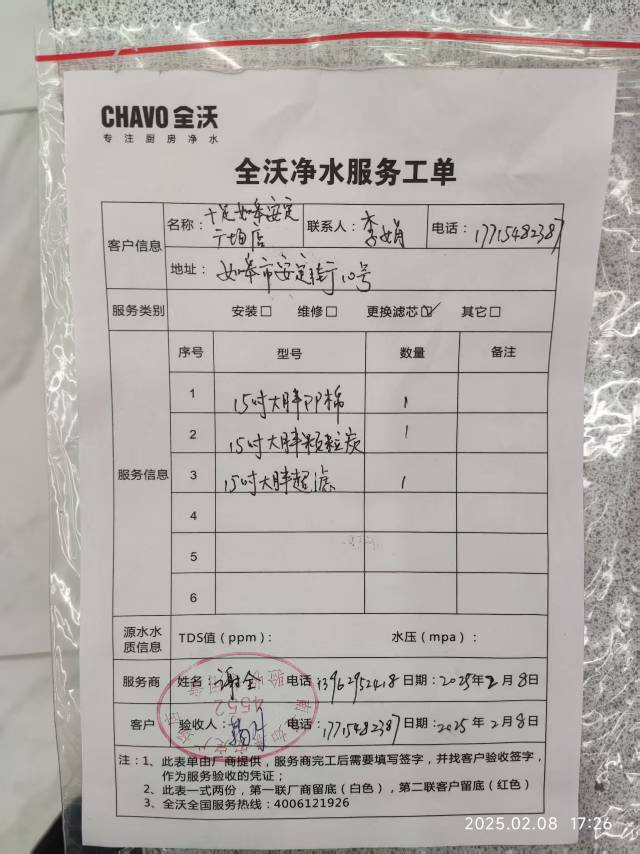 CHAVO 全沃
专注厨房净水
全沃净水服务工单
客户信息
名称：十足如皋安定广场店
联系人：李娟
电话：17715482387
地址：如皋市安定街10号
服务类别 安装□ 维修□ 更换滤芯☑ 其它□
服务信息
序号 型号 数量 备注
1 15吋大胖PP棉 1
2 15吋大胖颗粒炭 1
3 15吋大胖超滤 1
4
5
6
源水水质信息 TDS值（ppm）： 水压（mpa）：
服务商 姓名：谢全 电话：13962952418 日期：2025年2月8日
客户 验收人： 电话：17715482387 日期：2025年2月8日
4552
注：1、此表单由厂商提供，服务商完工后需要填写签字，并找客户验收签字，
作为服务验收的凭证；
2、此表一式两份，第一联厂商留底（白色），第二联客户留底（红色）
3、全沃全国服务热线：4006121926
2025.02.08 17:26